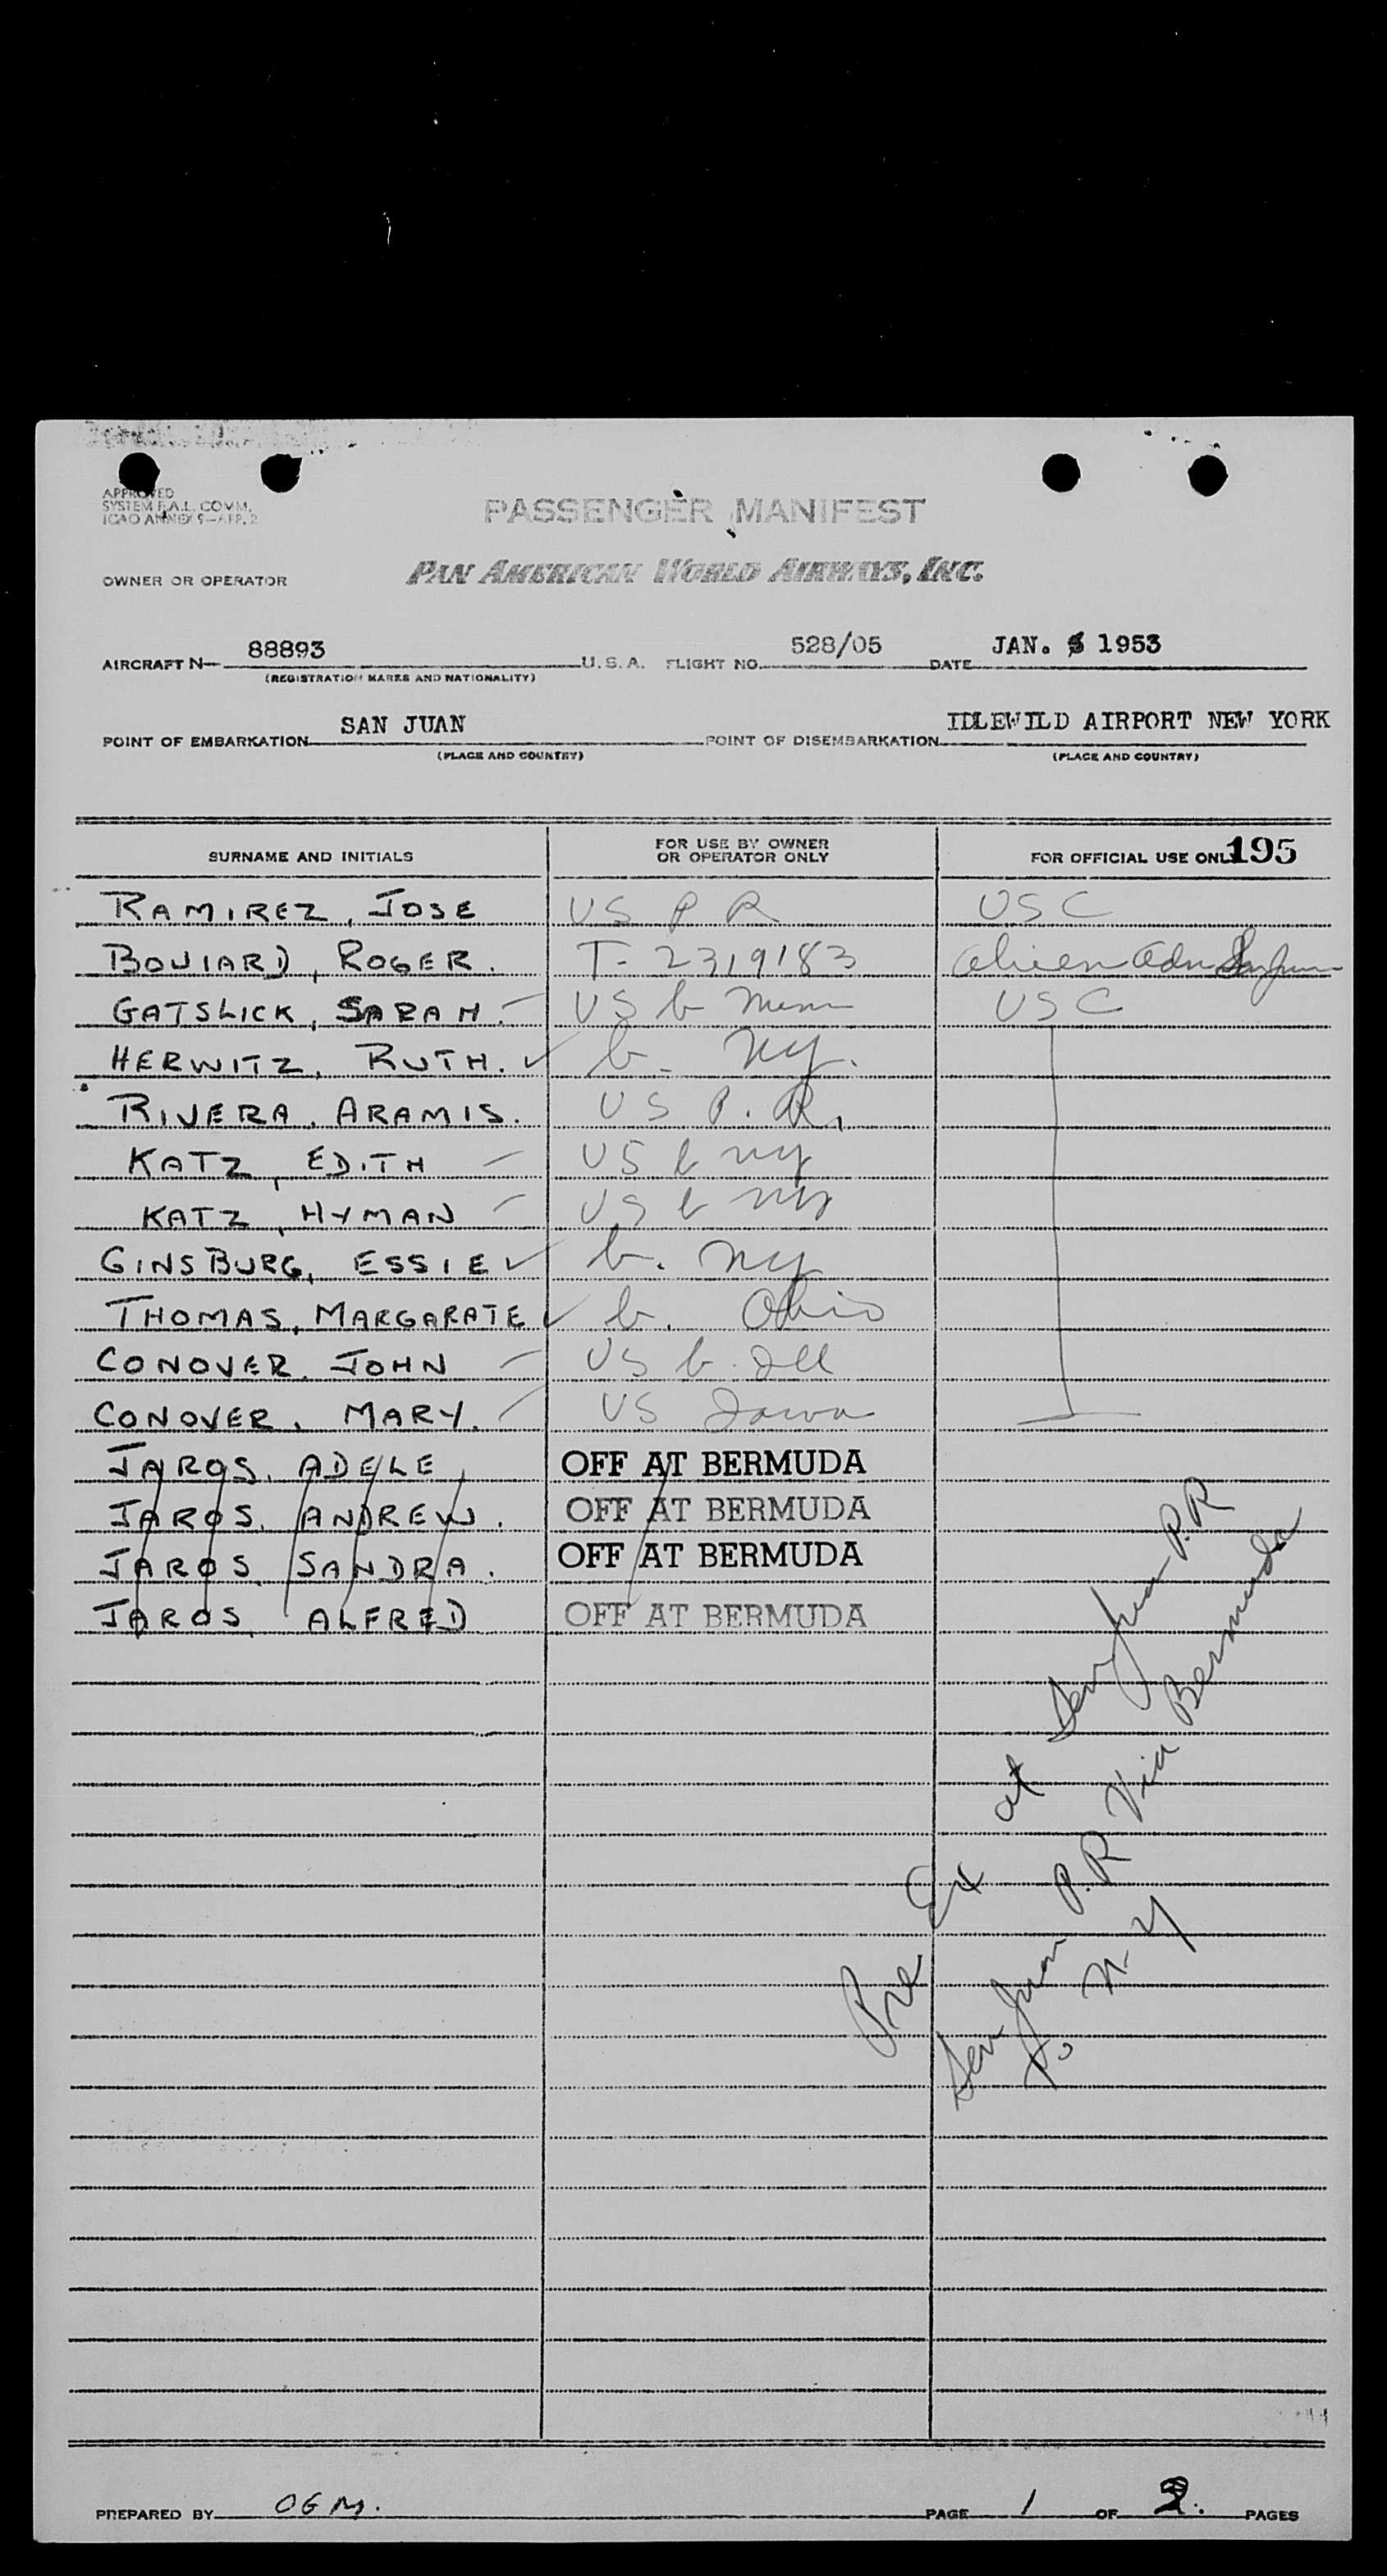 APPROVED
SYSTEM F.A.L. COMM.
ICAO ANNEX 9—APP. 2
PASSENGER MANIFEST
OWNER OR OPERATOR PAN AMERICAN WORLD AIRWAYS, INC.
AIRCRAFT N— 88893 U.S.A. FLIGHT NO. 528/05 DATE JAN. 5 1953
(REGISTRATION MARKS AND NATIONALITY)
POINT OF EMBARKATION SAN JUAN POINT OF DISEMBARKATION IDLEWILD AIRPORT NEW YORK
(PLACE AND COUNTRY) (PLACE AND COUNTRY)
SURNAME AND INITIALS FOR USE BY OWNER OR OPERATOR ONLY FOR OFFICIAL USE ONLY 195
RAMIREZ, JOSE US P R USC
BOUIARD, ROGER. T-2319183 alien adm San Juan
GATSLICK, SARAH. US b USC
HERWITZ, RUTH. b. NY.
RIVERA, ARAMIS. US P.R.
KATZ, EDITH US b NY
KATZ, HYMAN US b NY
GINSBURG, ESSIE b. NY
THOMAS, MARGARATE b. Ohio
CONOVER, JOHN US b. Ill
CONOVER, MARY. US Iowa
JAROS, ADELE, OFF AT BERMUDA
JAROS, ANDREW. OFF AT BERMUDA
JAROS, SANDRA. OFF AT BERMUDA
JAROS, ALFRED OFF AT BERMUDA
Pre Ex at San Juan P.R
San Juan P.R Via Bermuda
to N.Y
PREPARED BY OGM. PAGE 1 OF 2. PAGES